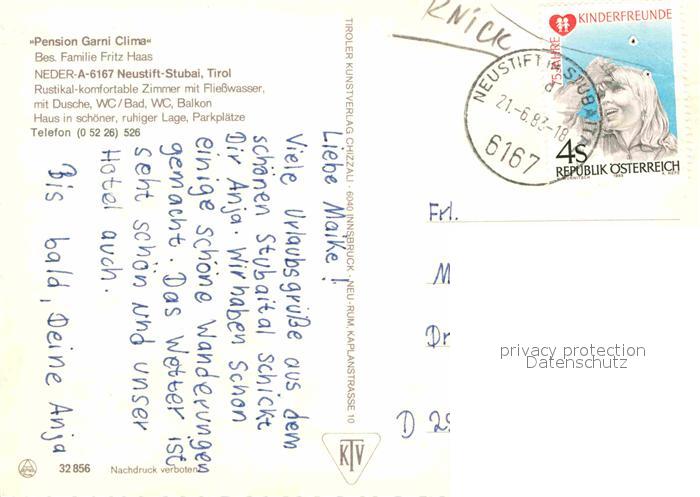 »Pension Garni Clima«
Bes. Familie Fritz Haas
NEDER-A-6167 Neustift-Stubai, Tirol
Rustikal-komfortable Zimmer mit Fließwasser,
mit Dusche, WC/Bad, WC, Balkon
Haus in schöner, ruhiger Lage, Parkplätze
Telefon (0 52 26) 526
Liebe Maike!
Viele Urlaubsgrüße aus dem
schönen Stubaital schickt
Dir Anja. Wir haben schon
einige schöne Wanderungen
gemacht. Das Wetter ist
seht schön und unser
Hotel auch.
Bis bald, Deine Anja
32 856 Nachdruck verboten
TIROLER KUNSTVERLAG CHIZZALI · 6040 INNSBRUCK - NEU-RUM, KAPLANSTRASSE 10
KTV
KNICK
75 JAHRE KINDERFREUNDE
4S
REPUBLIK ÖSTERREICH
NEUSTIFT IM STUBAITAL
21.-6.83-18
6167
Frl.
M
Dr
D 29
privacy protection
Datenschutz